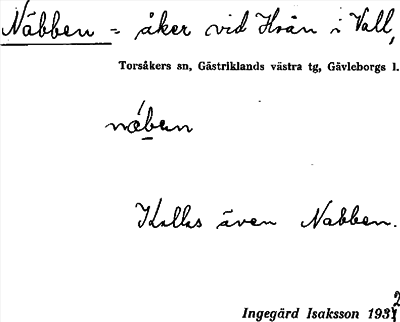 Näbben = åker vid Hoån i Vall,
Torsåkers sn, Gästriklands västra tg, Gävleborgs l.
næ̀ben
Kallas även Nabben.
Ingegärd Isaksson 1932